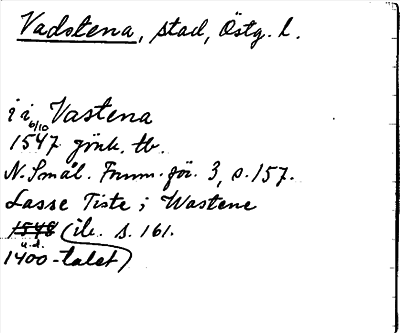 Vadstena, stad, Östg. l.
i i Vastena
6/10
1547 jönk. tb.
N. Smål. Fornm. för. 3, s. 157.
Lasse Tiste i Wastene
1548 (ib. s. 161.
u.d.
1400-talet)